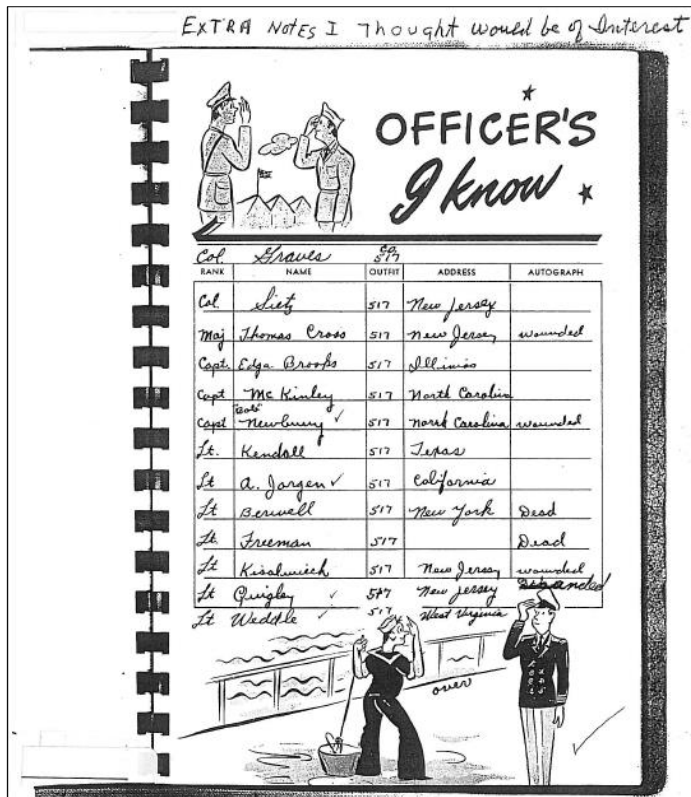 EXTRA NOTES I Thought would be of Interest
OFFICER'S
I know
Col. Graves Co. 517
RANK NAME OUTFIT ADDRESS AUTOGRAPH
Col. Sietz 517 New Jersey
Maj Thomas Cross 517 New Jersey wounded
Capt. Edga Brooks 517 Illinios
Capt Mc Kinley 517 North Carolina
Capt "Bob" Newberry ✓ 517 North Carolina wounded
Lt. Kendall 517 Texas
Lt A. Jorgen ✓ 517 California
Lt Berwell 517 New York Dead
Lt. Freeman 517 Dead
Lt 517 New Jersey wounded
Lt Quigley ✓ 517 New Jersey
Lt Weddle ✓ 517 West Virginia
over